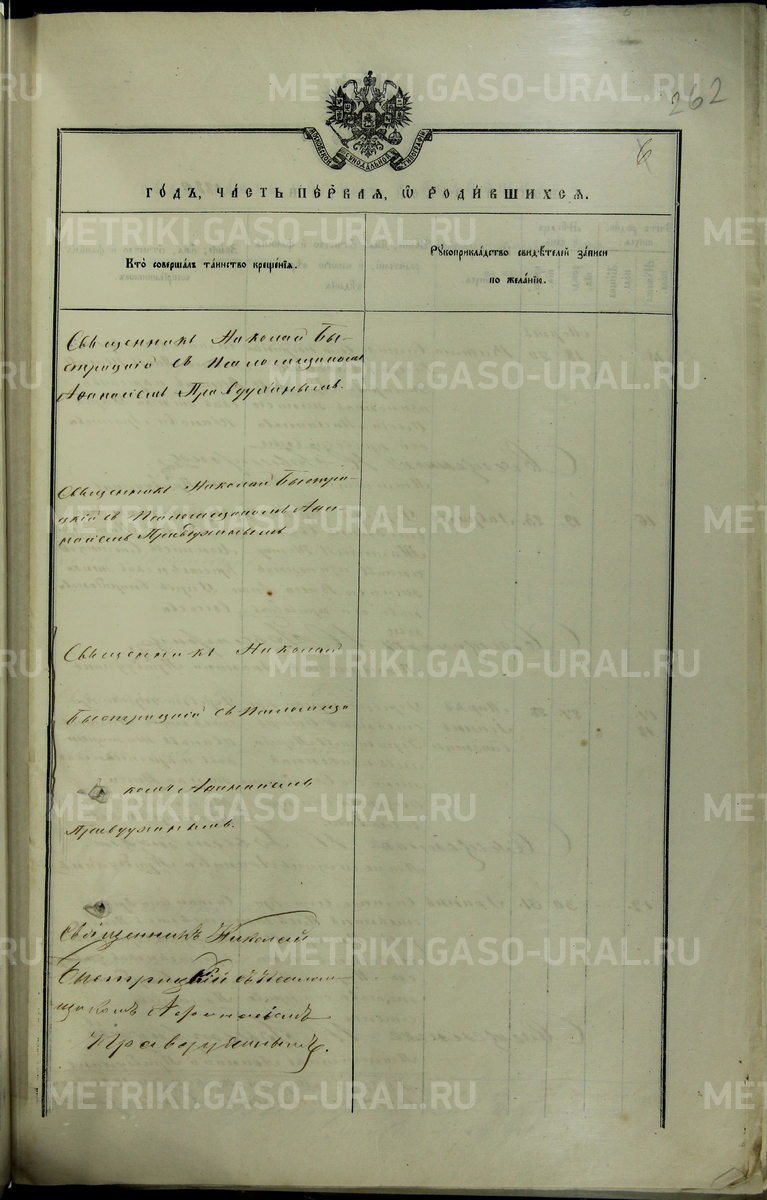 METRIKI.GASO-URAL.RU
262
6
МОСКОВСКОЙ СѴНОДАЛЬНОЙ ТИПОГРАФІИ
ГОДЪ, ЧАСТЬ ПЕРВАЯ, Ѡ РОДИВШИХСЯ.
Кто совершалъ таинство крещенія.
Рукоприкладство свидѣтелей записи
по желанію.
Священникъ Николай Бы-
стрицкій съ Псаломщикомъ
Афанасіемъ Правдухинымъ.
Священникъ Николай Быстри-
цкій съ Псаломщикомъ Афа-
насіемъ Правдухинымъ
Священникъ Николай
Быстрицкій съ Псаломщи
комъ Афанасіемъ
Правдухинымъ.
Священникъ Николай
Быстрицкій съ Псалом-
щикомъ Афанасіемъ
Правдухинымъ.
METRIKI.GASO-URAL.RU